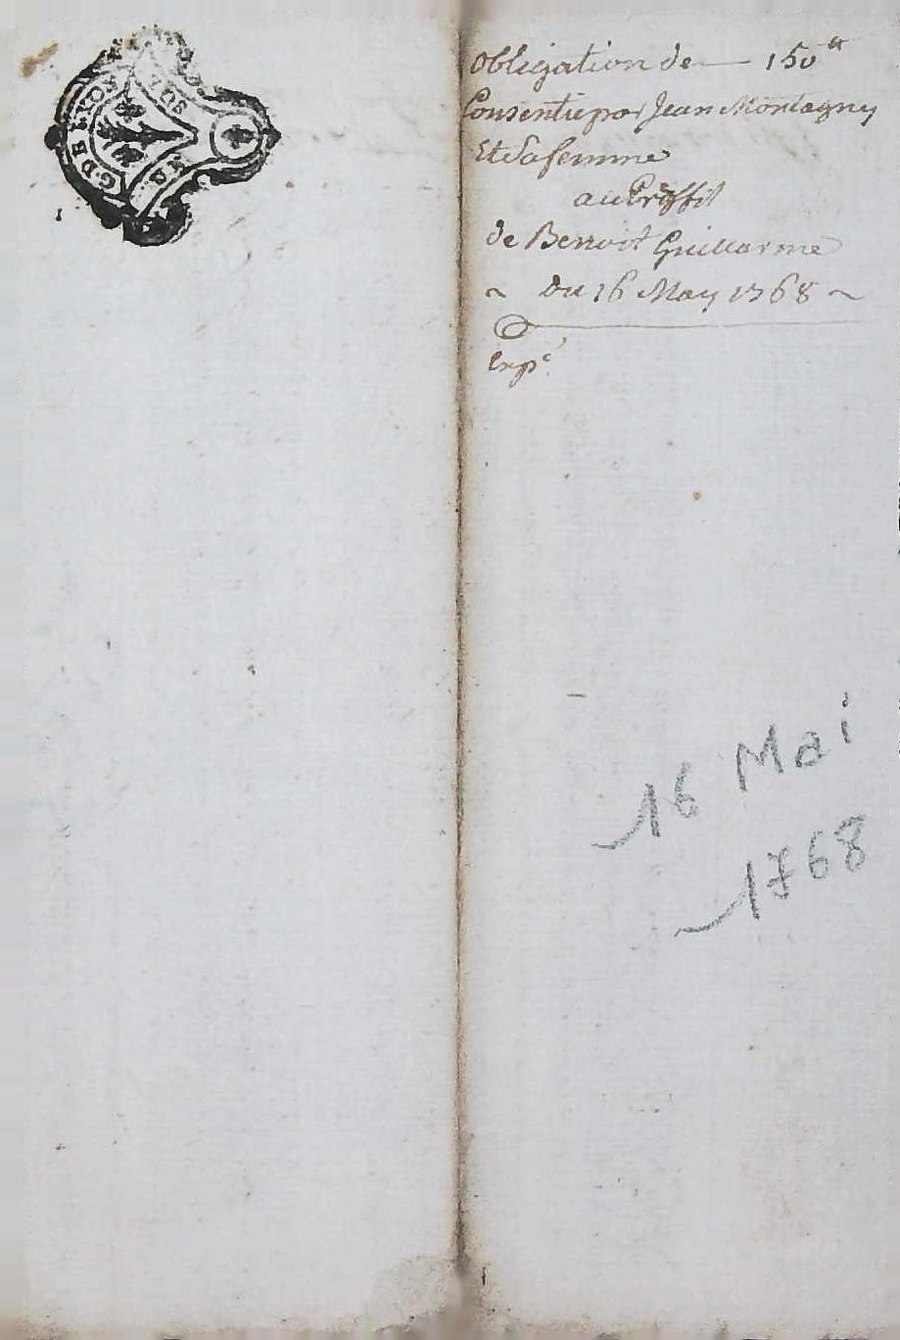 G DE LYON
DEUX SOLS
Obligation de — 150tt
Consentie par Jean Montagny
Et Sa femme
au Proffit
de Benoit Guillarme
~ du 16 May 1768 ~
Expé
16 Mai
1768